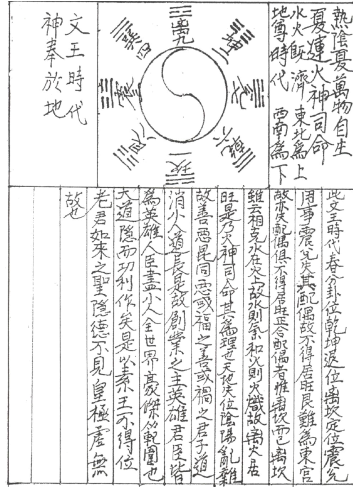 熱陰真萬物自生
夏運火神司命
水火既濟 東北為上
地尊時代 西南為下
四
二
七
六
八
文王時代
神奉於地
此文王時代春分卦位乾坤退位离坎定位震兌
用事震兌失其配偶故不得居旺艮難為東宮
故亦失配偶俱不得居旺正合配偶者惟离坎而已离坎
雖云相克水在火上故水則柔和火則火熾故离火居
旺是乃火神司命其為理也天地失位陰陽亂雜
故善惡昆同惡或福之善或禍之君子道
消小人道長是故創業之主英雄君臣皆
為英雄人臣盡小人全世界豪傑的範圍也
大道隱而功利作矣是以素王不得位
老君如來之聖隱德不見皇極虛無
故也